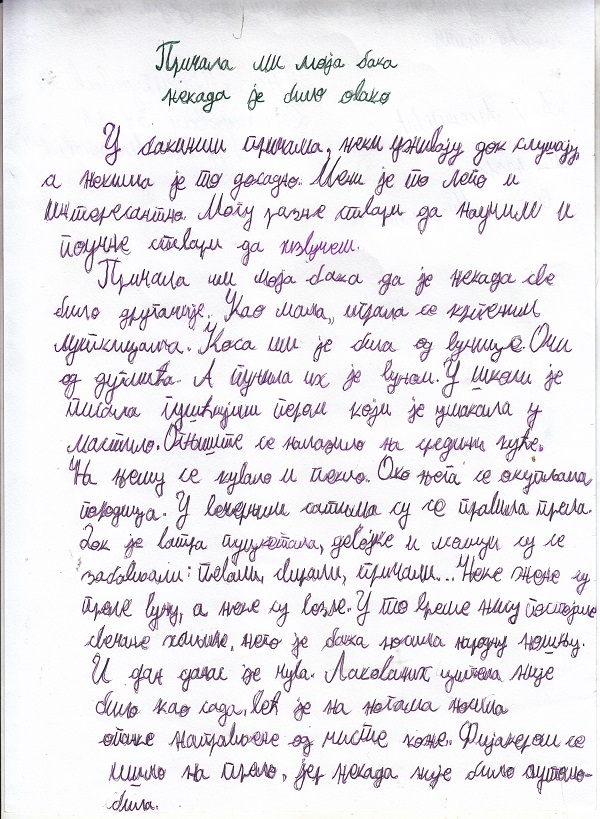 Причала ми моја бака
некада је било овако
У бакиним причама, неки уживају док слушају,
а некима је то досадно. Мени је то лепо и
интересантно. Могу разне ствари да научим и
поучне ствари да извучем.
Причала ми моја бака да је некада све
било другачије. Као мала, играла се крпеним
луткицама. Коса им је била од вунице. Очи
од дугмића. А пунила их је вуном. У школи је
писала гушчијим пером који је умакала у
мастило. Огњиште се налазило на средини куће.
На њему се кувало и пекло. Око њега се окупљала
породица. У вечерњим сатима су се правила прела.
Док је ватра пуцкетала, девојке и момци су се
забављали: певали, свирали, причали... Неке жене су
преле вуну, а неке су везле. У то време нису постојале
свечане хаљине, него је бака носила народну ношњу.
И дан данас је чува. Лакованих ципела није
било као сада, већ је на ногама носила
опанке направљене од чисте коже. Фијакером се
ишло на прело, јер некада није било аутомо-
била.